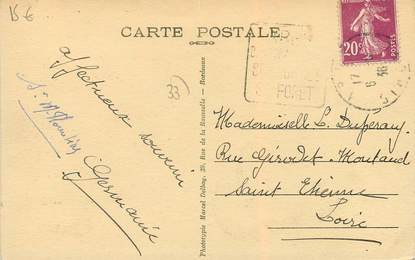 15 €
CARTE POSTALE
20c
POSTES
FORET
33
affectueux souvenir
Germaine
Phototypie Marcel Delboy, 39, Rue de la Rousselle - Bordeaux
Mademoiselle L. Duperay
Rue Girodet-Montaud
Saint Etienne
Loire